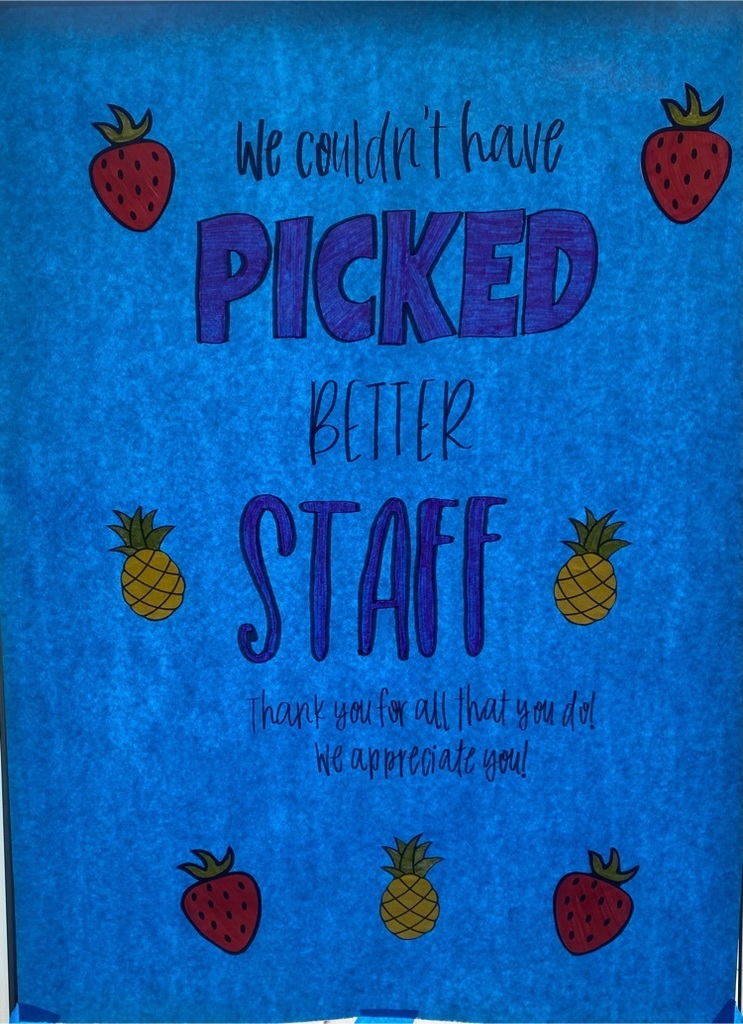 We couldn't have
PICKED
BETTER
STAFF
Thank you for all that you do!
We appreciate you!